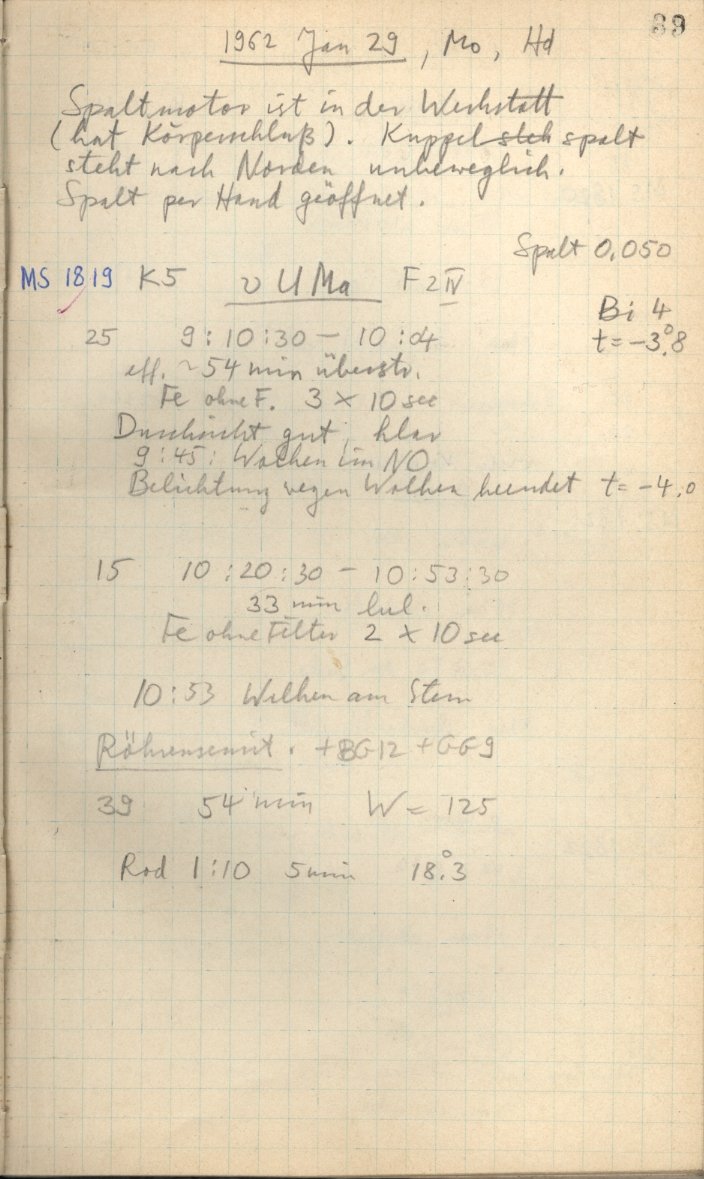 89
1962 Jan 29, Mo, Hd
Spaltmotor ist in der Werkstatt
(hat Körperschluß). Kuppel steh spalt
steht nach Norden unbeweglich.
Spalt per Hand geöffnet.
Spalt 0,050
MS 1819 K5 υ UMa F2IV
Bi 4
25 9:10:30 – 10:04 t=-3°.8
eff. ~54 min überstr.
Fe ohne F. 3 × 10 sec
Durchsicht gut, klar
9:45: Wolken im NO
Belichtung wegen Wolken beendet t= -4.0
15 10:20:30 – 10:53:30
33 min
Fe ohne Filter 2 × 10 sec
10:53 Wolken am Stern
+BG12 +GG9
39 54 min W = 125
Rod 1:10 5 min 18°.3